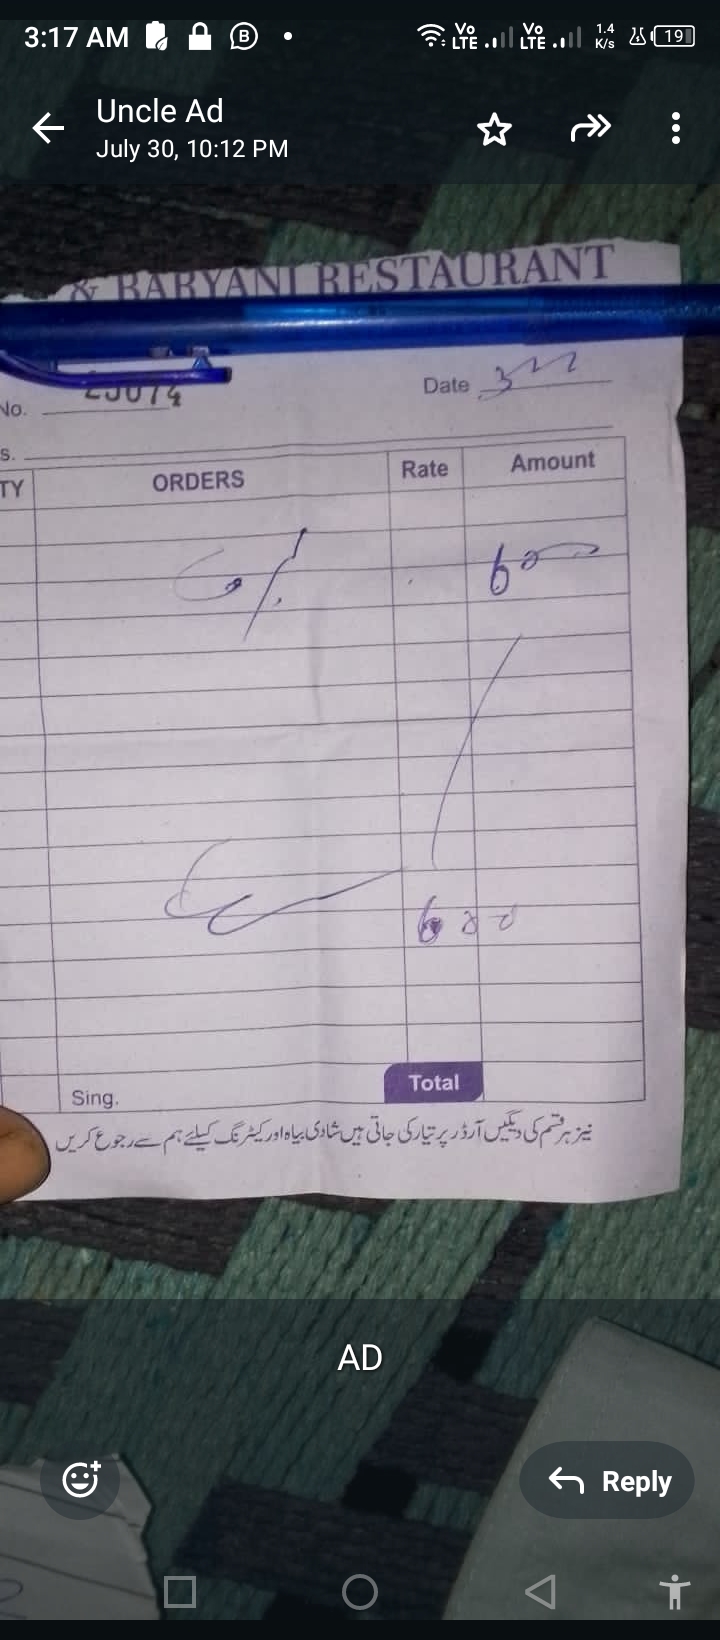 3:17 AM VoLTE VoLTE 1.4 K/s 19
Uncle Ad
July 30, 10:12 PM
& BARYANI RESTAURANT
No. 25074
Date
s.
TY ORDERS Rate Amount
600
600
Total
Sing.
نیز ہر قسم کی دیگیں آرڈر پر تیار کی جاتی ہیں شادی بیاہ اور کیٹرنگ کیلئے ہم سے رجوع کریں
AD
Reply